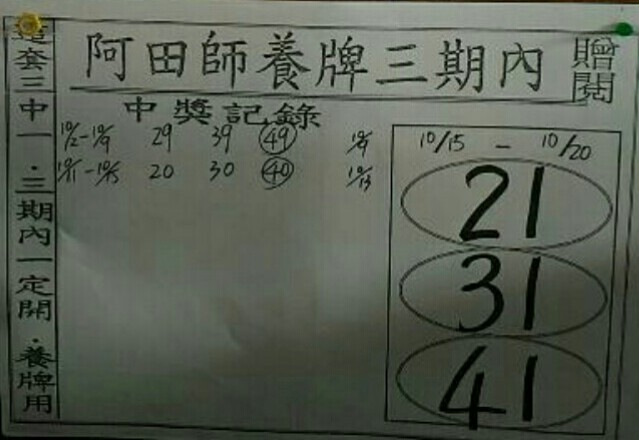 阿田師養牌三期內
贈閱
連套三中一．三期內一定開．養牌用
中獎記錄
10/2-10/9 29 39 49 10/9
10/11-10/15 20 30 40 10/13
10/15 - 10/20
21
31
41